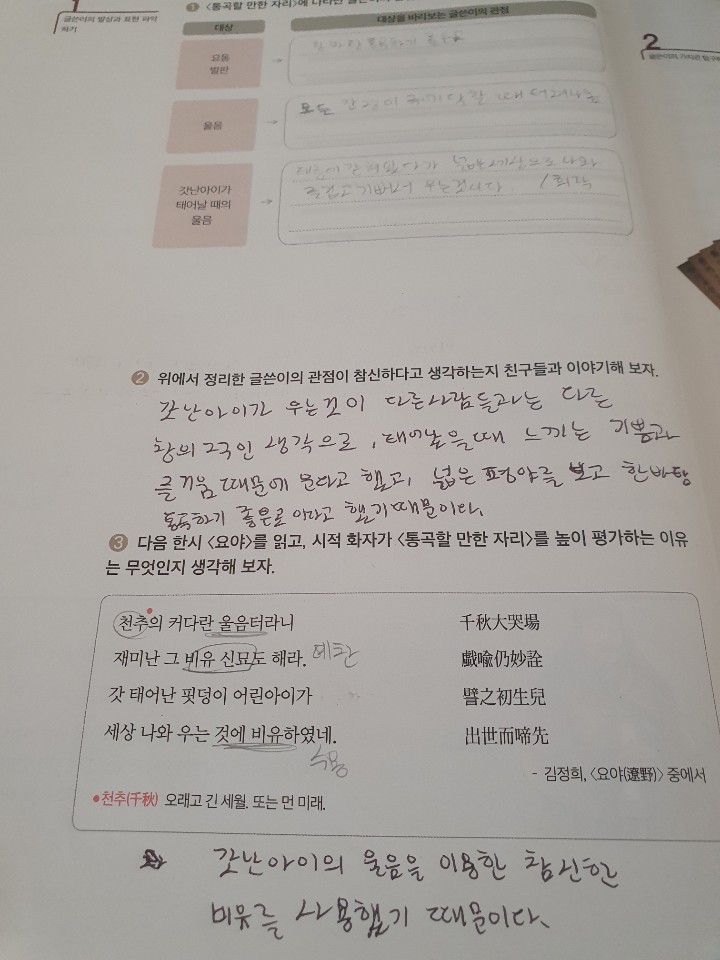 1
글쓴이의 발상과 표현 파악
하기
1 <통곡할 만한 자리>에 나타난
대상
대상을 바라보는 글쓴이의 관점
2
요동
벌판
한바탕 통곡하기 좋은
울음
모든 감정이 극에 달할 때 터져나오는
갓난아이가
태어날 때의
울음
넓은 세상으로 나와
즐겁고 기뻐서 우는것이다.
2 위에서 정리한 글쓴이의 관점이 참신하다고 생각하는지 친구들과 이야기해 보자.
갓난아이가 우는것이 다른사람들과는 다른
창의적인 생각으로, 태어났을때 느끼는 기쁨과
즐거움 때문에 운다고 했고, 넓은 평야를 보고 한바탕
통곡하기 좋은 이라고 했기때문이다.
3 다음 한시 <요야>를 읽고, 시적 화자가 <통곡할 만한 자리>를 높이 평가하는 이유
는 무엇인지 생각해 보자.
천추•의 커다란 울음터라니 千秋大哭場
재미난 그 비유 신묘도 해라. 예찬 戱喩仍妙詮
갓 태어난 핏덩이 어린아이가 譬之初生兒
세상 나와 우는 것에 비유하였네. 出世而啼先
인용
- 김정희, <요야(遼野)> 중에서
•천추(千秋) 오래고 긴 세월. 또는 먼 미래.
갓난아이의 울음을 이용한 참신한
비유를 사용했기 때문이다.